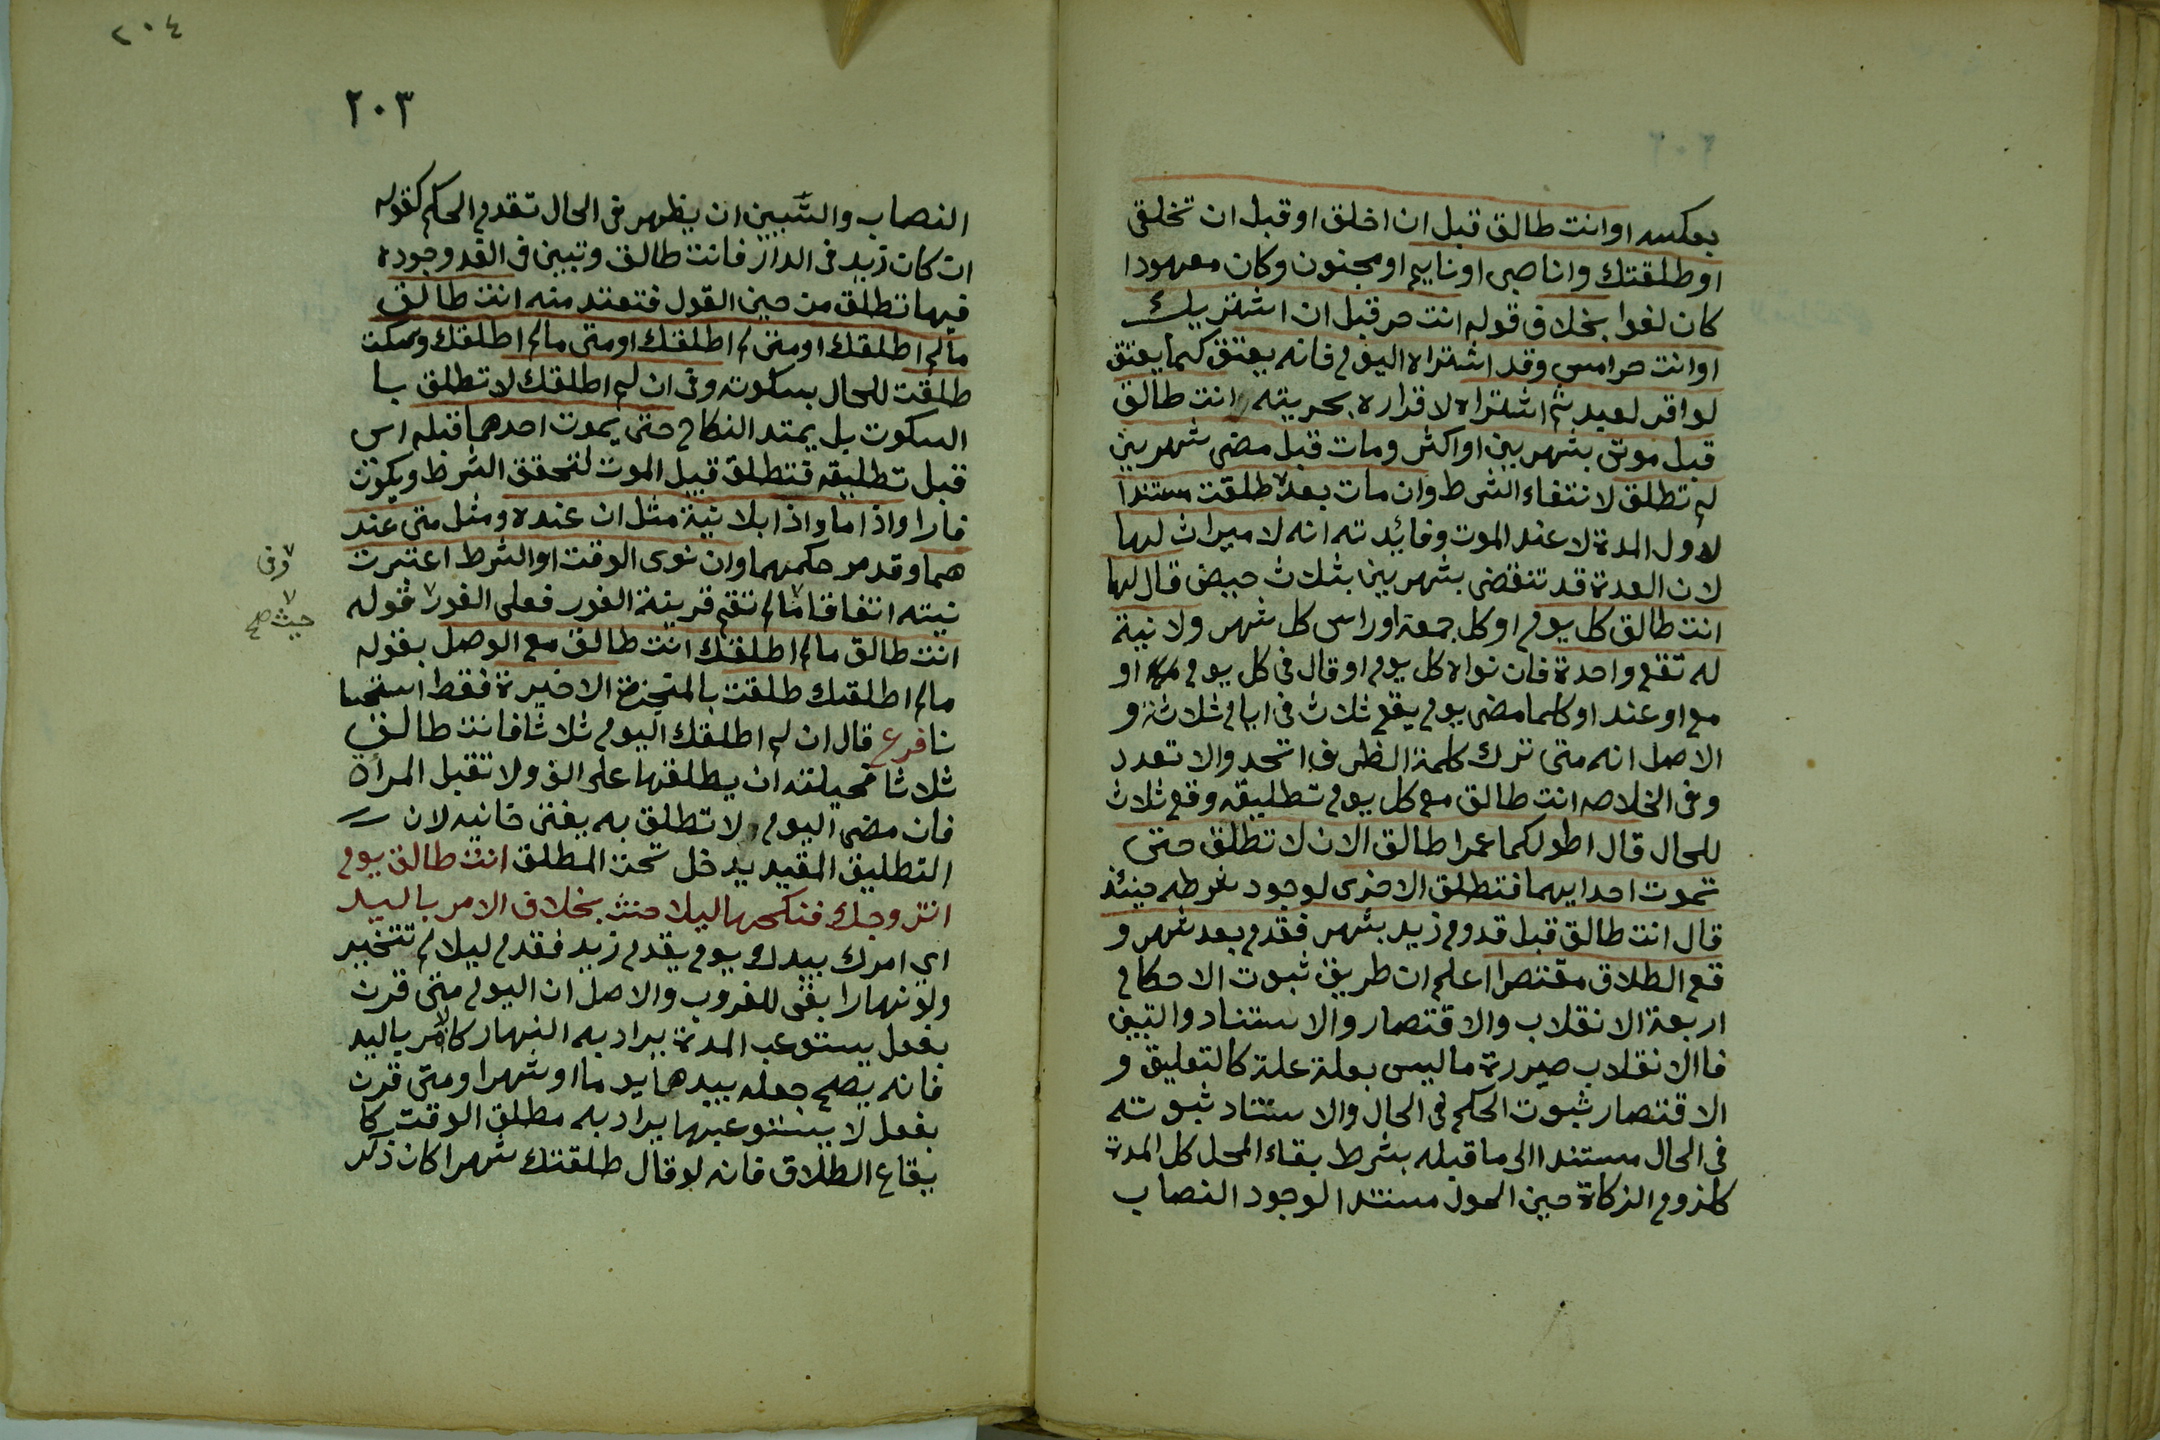 بعكسه او انت طالق قبل ان اخلق او قبل ان تخلقى
او طلقتك وانا صبى او نايم او مجنون وكان معهودا
كان لغوا بخلاف قوله انت حر قبل ان اشتريك
او انت حر امس وقد اشتراه اليوم فانه يعتق كما يعتق
لو اقر لعبد ثم اشتراه لاقراره بحريته انت طالق
قبل موتى بشهرين او اكثر ومات قبل مضى شهرين
لم تطلق لانتفاء الشرط وان مات بعده طلقت مستندا
لاول المدة لا عند الموت وفائدته انه لا ميراث لها
لان العدة قد تنقضى بشهرين بثلاث حيض قال لها
انت طالق كل يوم او كل جمعة او راس كل شهر ولا نية
له تقع واحدة فان نواه كل يوم او قال فى كل يوم او
مع او عند او كلما مضى يوم يقع ثلاث فى ايام ثلاثة و
الاصل انه متى ترك كلمة الظرف اتحد والا تعدد
وفى الخلاصه انت طالق مع كل يوم تطليقه وقع ثلاث
للحال قال اطولكما عمرا طالق الان لا تطلق حتى
تموت احدايهما فتطلق الاخرى لوجود شرطه حينئذ
قال انت طالق قبل قدوم زيد بشهر فقدم بعد شهر و
قع الطلاق مقتصرا اعلم ان طريق ثبوت الاحكام
اربعة الانقلاب والاقتصار والاستناد والتبين
فاالانقلاب صيررة ما ليس بعلة علة كالتعليق و
الاقتصار ثبوت الحكم فى الحال والاستناد ثبوته
فى الحال مستندا الى ما قبله بشرط بقاء المحل كل المدة
كلزوم الزكاة حين الحول مستندا لوجود النصاب
٢٠٤
٢٠٣
النصاب والتبيين ان يظهر فى الحال تقدم الحكم كقوله
ان كان زيد فى الدار فانت طالق وتبين فى الغد وجوده
فيها تطلق من حين القول فتعتد منه انت طالق
مالم اطلقك او متى لم اطلقك او متى مالم اطلقك وسكت
طلقت للحال بسكوته وفى ان لم اطلقك لا تطلق با
السكوت بل يمتد النكاح حتى يموت احدهما قبله اى
قبل تطليقه فتطلق قبيل الموت لتحقق الشرط ويكون
فارا واذا ما واذا بلا نية مثل ان عنده ومثل متى عند
هما وقد مر حكمهما وان نوى الوقت او الشرط اعتبرت
نيته اتفاقا مالم تقم قرينة الفور فعلى الفور قوله
وفى
حيث صح
انت طالق مالم اطلقك انت طالق مع الوصل بقوله
مالم اطلقك طلقت بالمنجزة الاخيرة فقط استحسا
نا فرع قال ان لم اطلقك اليوم ثلاثا فانت طالق
ثلاثا فحيلته ان يطلقها على الف ولا تقبل المراة
فان مضى اليوم لا تطلق به يفتى خانيه لان
التطليق المقيد يدخل تحت المطلق انت طالق يوم
اتزوجك فنكحها ليلا حنث بخلاف الامر باليد
اى امرك بيدك يوم يقدم زيد فقدم ليلا لم تتخير
ولو نهارا بقى للغروب والاصل ان اليوم متى قرن
بفعل يستوعب المدة يراد به النهار كالامر باليد
فانه يصح جعله بيدها يوما او شهرا ومتى قرن
بفعل لا يستوعبها يراد به مطلق الوقت كا
يقاع الطلاق فانه لو قال طلقتك شهرا كان ذكر